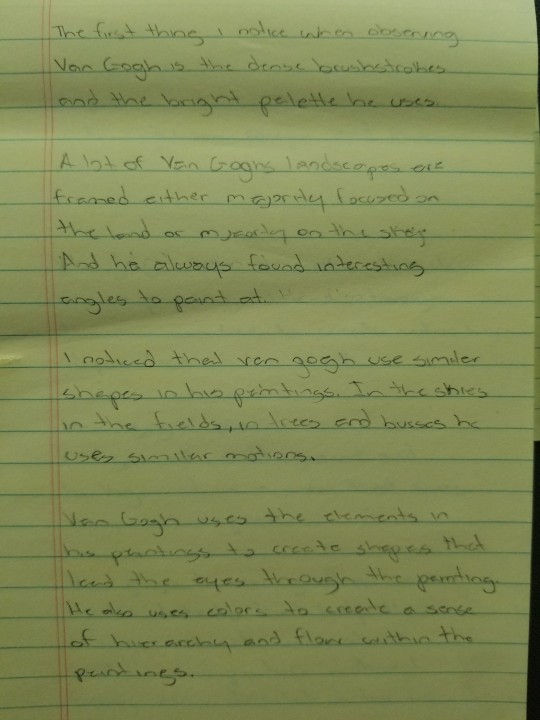 The first thing I notice when observing
Van Gogh is the dense brushstrokes
and the bright palette he uses.
A lot of Van Goghs landscapes are
framed either majority focused on
the land or majority on the sky.
And he always found interesting
angles to paint at.
I noticed that van gogh use similar
shapes in his paintings. In the skies
in the fields, in trees and busses he
uses similar motions.
Van Gogh uses the elements in
his paintings to create shapes that
lead the eyes through the painting.
He also uses colors to create a sense
of hierarchy and flow within the
paintings.